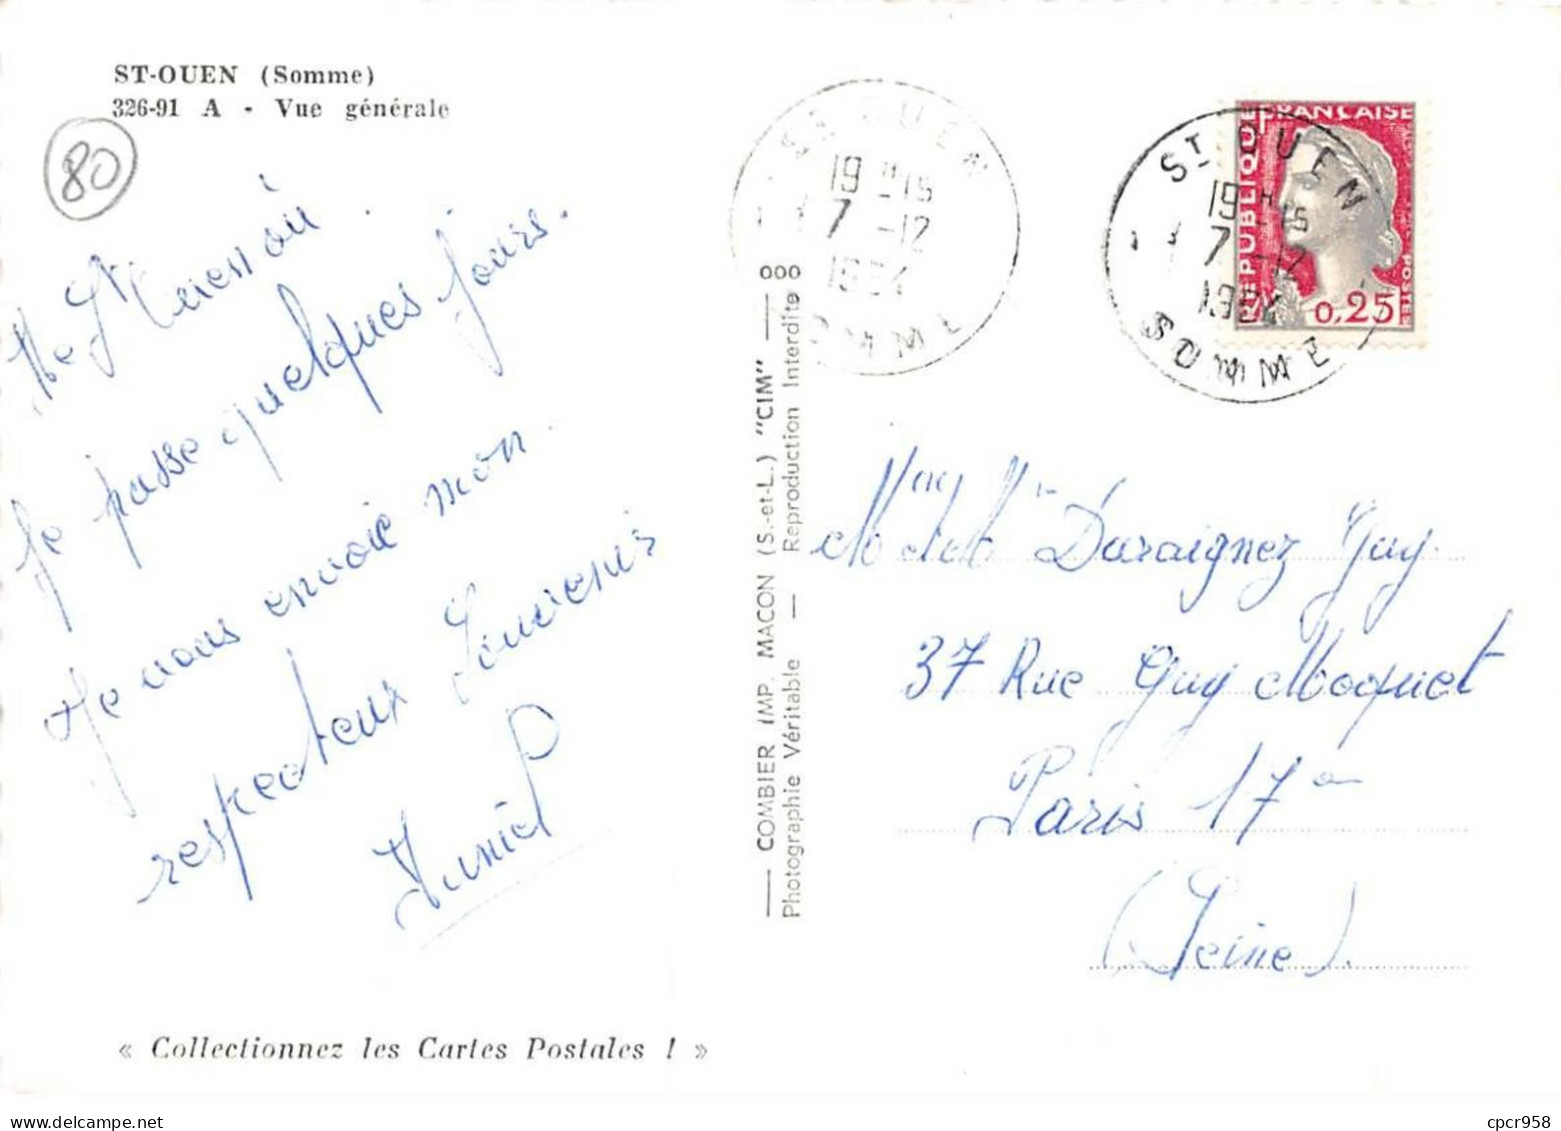 ST-OUEN (Somme)
326-91 A - Vue générale
80
De
où
Je passe quelques jours.
Je vous envoie mon
respectueux souvenir
Daniel
« Collectionnez les Cartes Postales ! »
COMBIER IMP. MACON (S.-et-L.) "CIM"
Photographie Véritable — Reproduction Interdite
ST OUEN
19 H 15
7 -12
1964
SOMME
ST OUEN
19 H 15
7 -12
1964
SOMME
RÉPUBLIQUE FRANÇAISE
POSTES
0,25
Daraignez Guy
37 Rue Guy Moquet
Paris 17
(Seine).
cpcr958